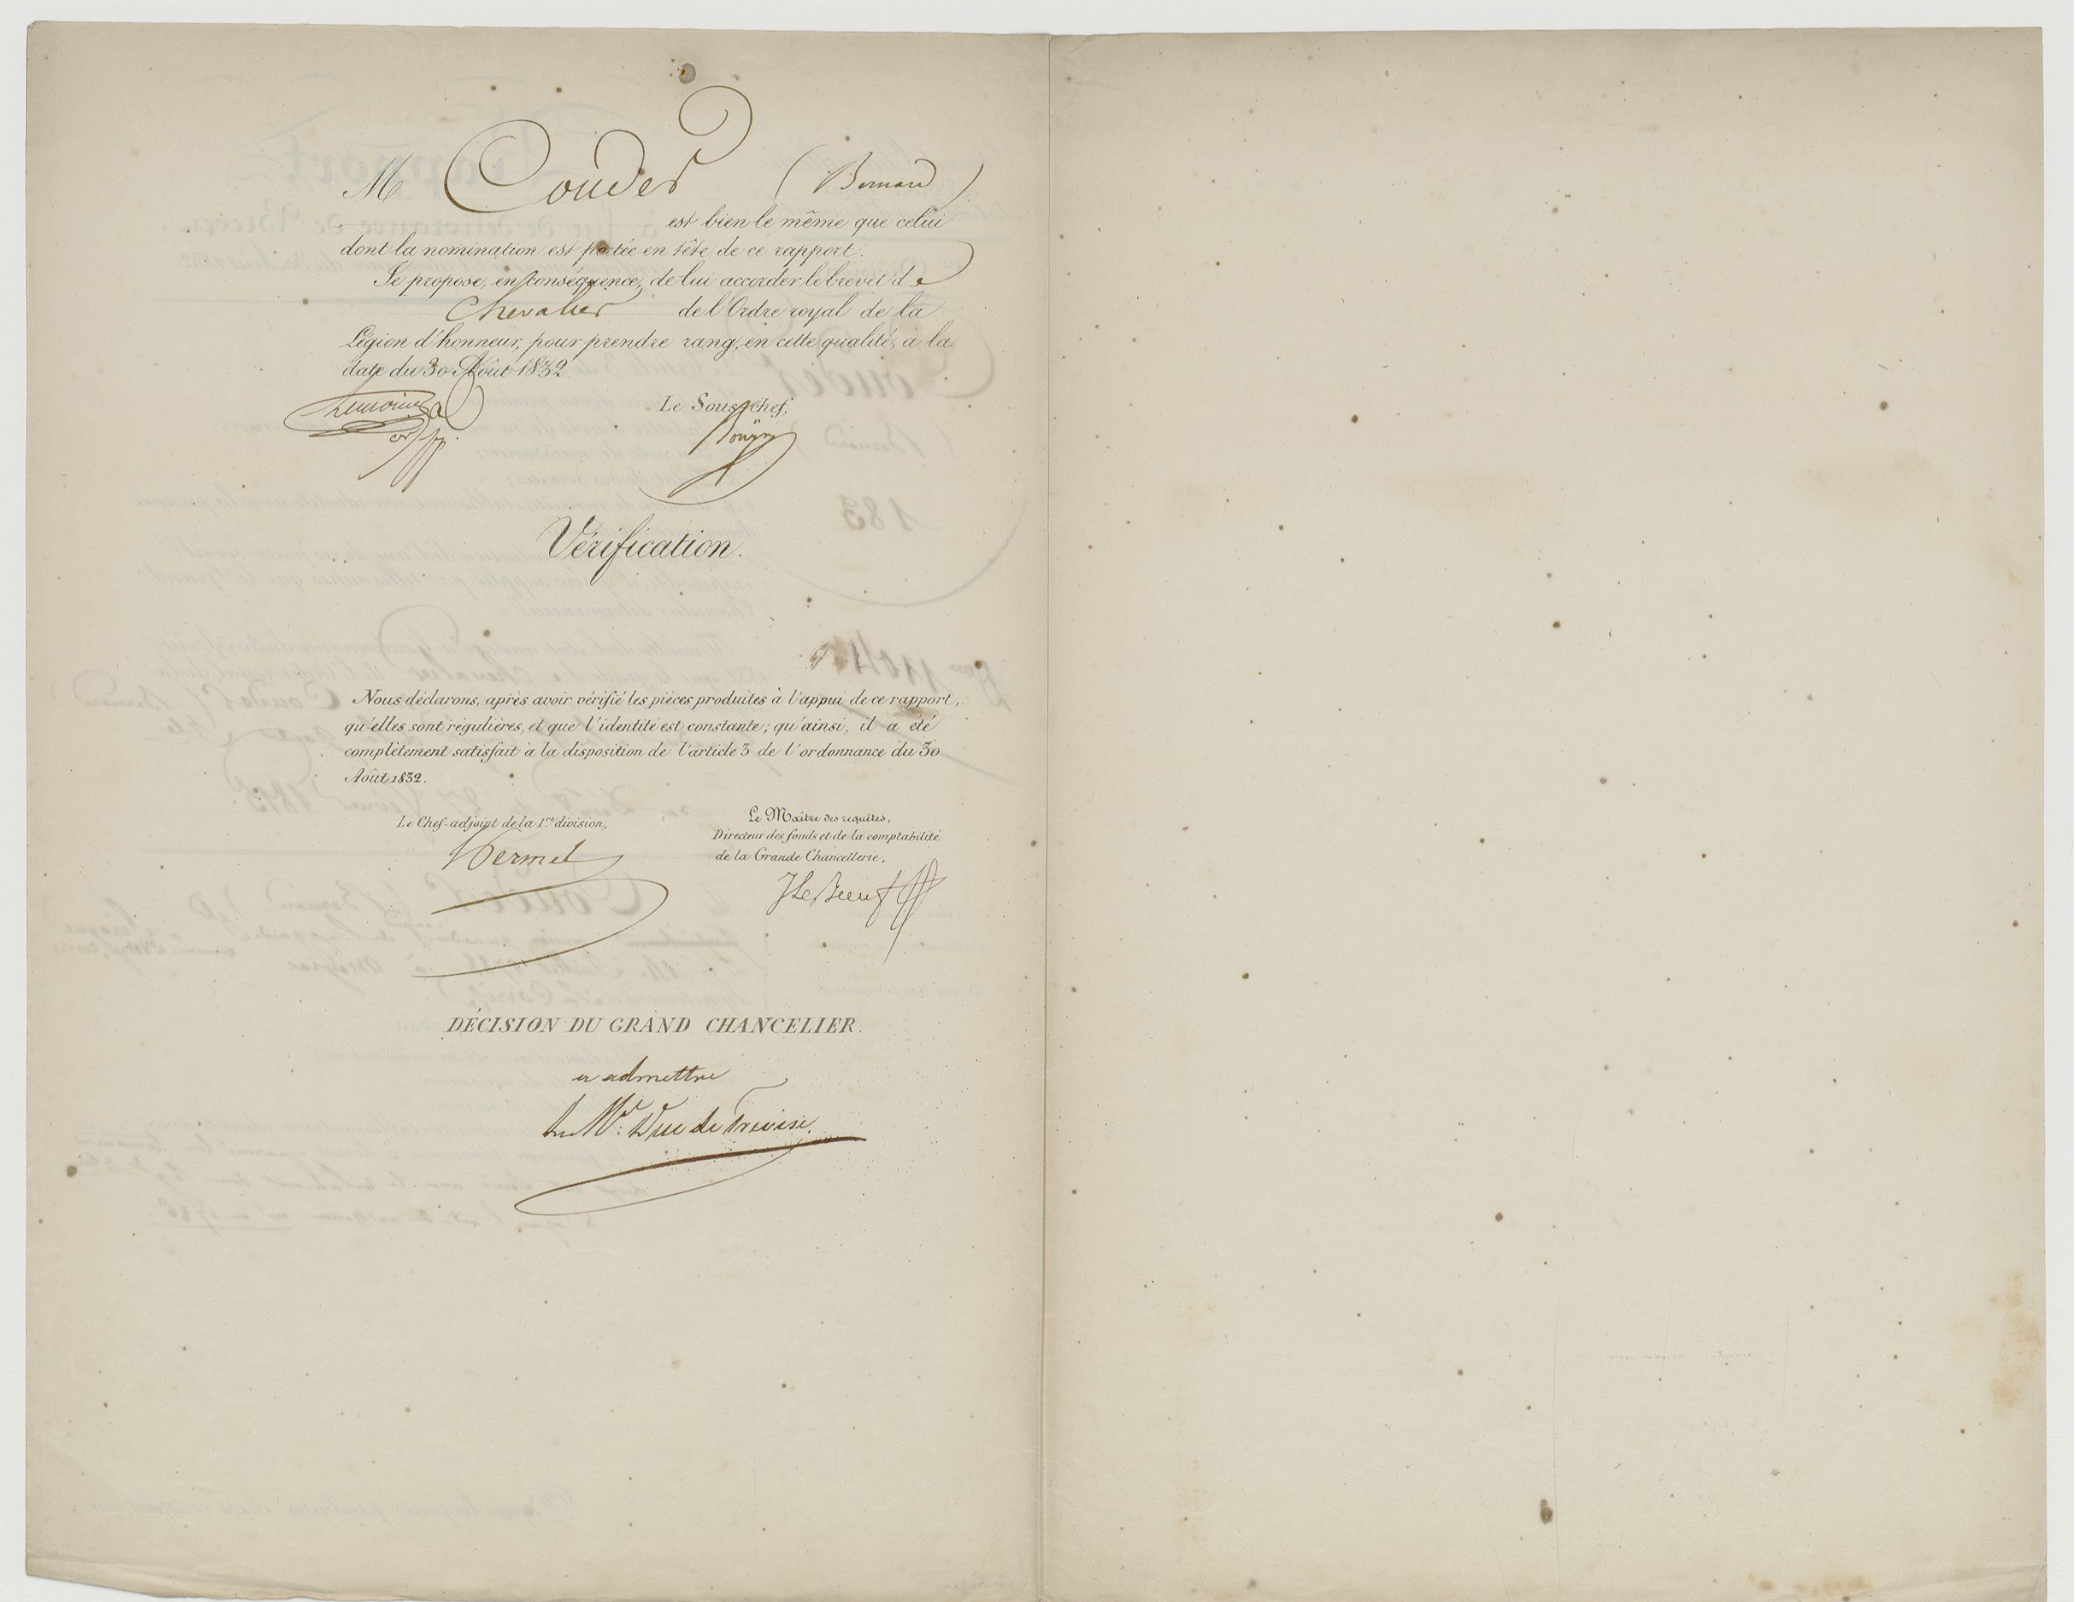 M Couder (Bernard)
est bien le même que celui
dont la nomination est portée en tête de ce rapport.
Je propose, en conséquence, de lui accorder le brevet de
Chevalier de l'Ordre royal de la
Légion d'honneur, pour prendre rang, en cette qualité, à la
date du 30 Août 1832
Le Sous-chef,
Vérification.
Nous déclarons, après avoir vérifié les pièces produites à l'appui de ce rapport,
qu'elles sont régulières, et que l'identité est constante; qu'ainsi, il a été
complètement satisfait à la disposition de l'article 3 de l'ordonnance du 30
Août 1832.
Le Chef-adjoint de la 1.re division,
Hermel
Le Maître des requêtes,
Directeur des fonds et de la comptabilité
de la Grande Chancellerie,
DÉCISION DU GRAND CHANCELIER.
a admettre
Le M.al Duc de Trévise.